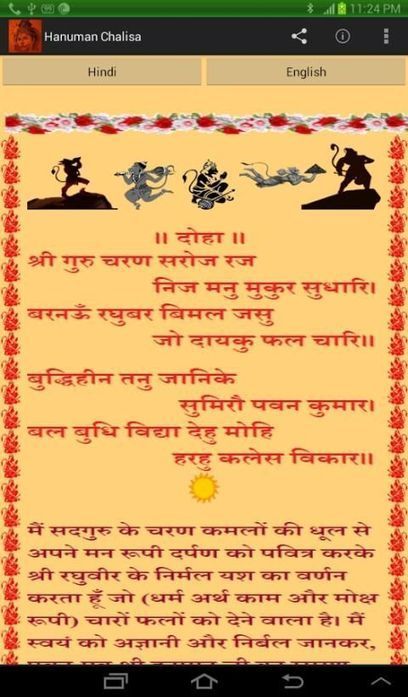 11:24 PM
Hanuman Chalisa
Hindi English
।। दोहा ।।
श्री गुरु चरण सरोज रज
निज मनु मुकुर सुधारि।
बरनऊँ रघुबर बिमल जसु
जो दायकु फल चारि।।
बुद्धिहीन तनु जानिके
सुमिरौ पवन कुमार।
बल बुधि विद्या देहु मोहि
हरहु कलेस विकार॥
मैं सदगुरु के चरण कमलों की धूल से
अपने मन रूपी दर्पण को पवित्र करके
श्री रघुवीर के निर्मल यश का वर्णन
करता हूँ जो (धर्म अर्थ काम और मोक्ष
रूपी) चारों फलों को देने वाला है। मैं
स्वयं को अज्ञानी और निर्बल जानकर,